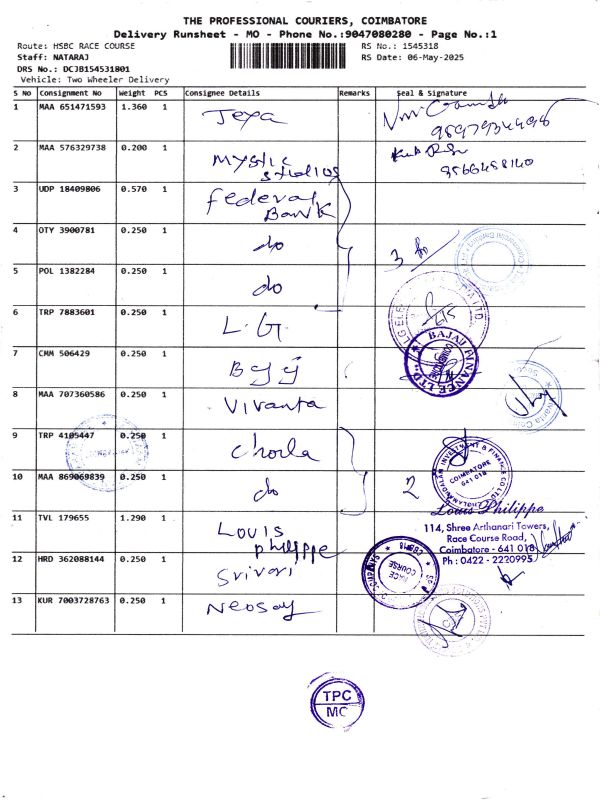 THE PROFESSIONAL COURIERS, COIMBATORE
Delivery Runsheet - MO - Phone No.:9047080280 - Page No.:1
Route: HSBC RACE COURSE
RS No.: 1545318
Staff: NATARAJ
RS Date: 06-May-2025
DRS No.: DCJB154531801
Vehicle: Two Wheeler Delivery
S No Consignment No Weight PCS Consignee Details Remarks Seal & Signature
1 MAA 651471593 1.360 1
9597934498
2 MAA 576329738 0.200 1 Mystic Studios
9566458140
3 UDP 18409806 0.570 1 Federal Bank
4 OTY 3900781 0.250 1 do
3
5 POL 1382284 0.250 1 do
6 TRP 7883601 0.250 1 L.G.
7 CMM 506429 0.250 1
BAJAJ FINANCE LTD.
8 MAA 707360586 0.250 1 Vivanta
9 TRP 4105447 0.250 1 Chola
10 MAA 869069839 0.250 1 do
2
INVESTMENT & FINANCE CO LTD
COIMBATORE
641 018
11 TVL 179655 1.290 1 Louis Philippe
Louis Philippe
114, Shree Arthanari Towers,
Race Course Road,
Coimbatore - 641 018
Ph : 0422 - 2220995
12 HRD 362088144 0.250 1 Srivari
RACE
COURSE
13 KUR 7003728763 0.250 1
TPC
MC